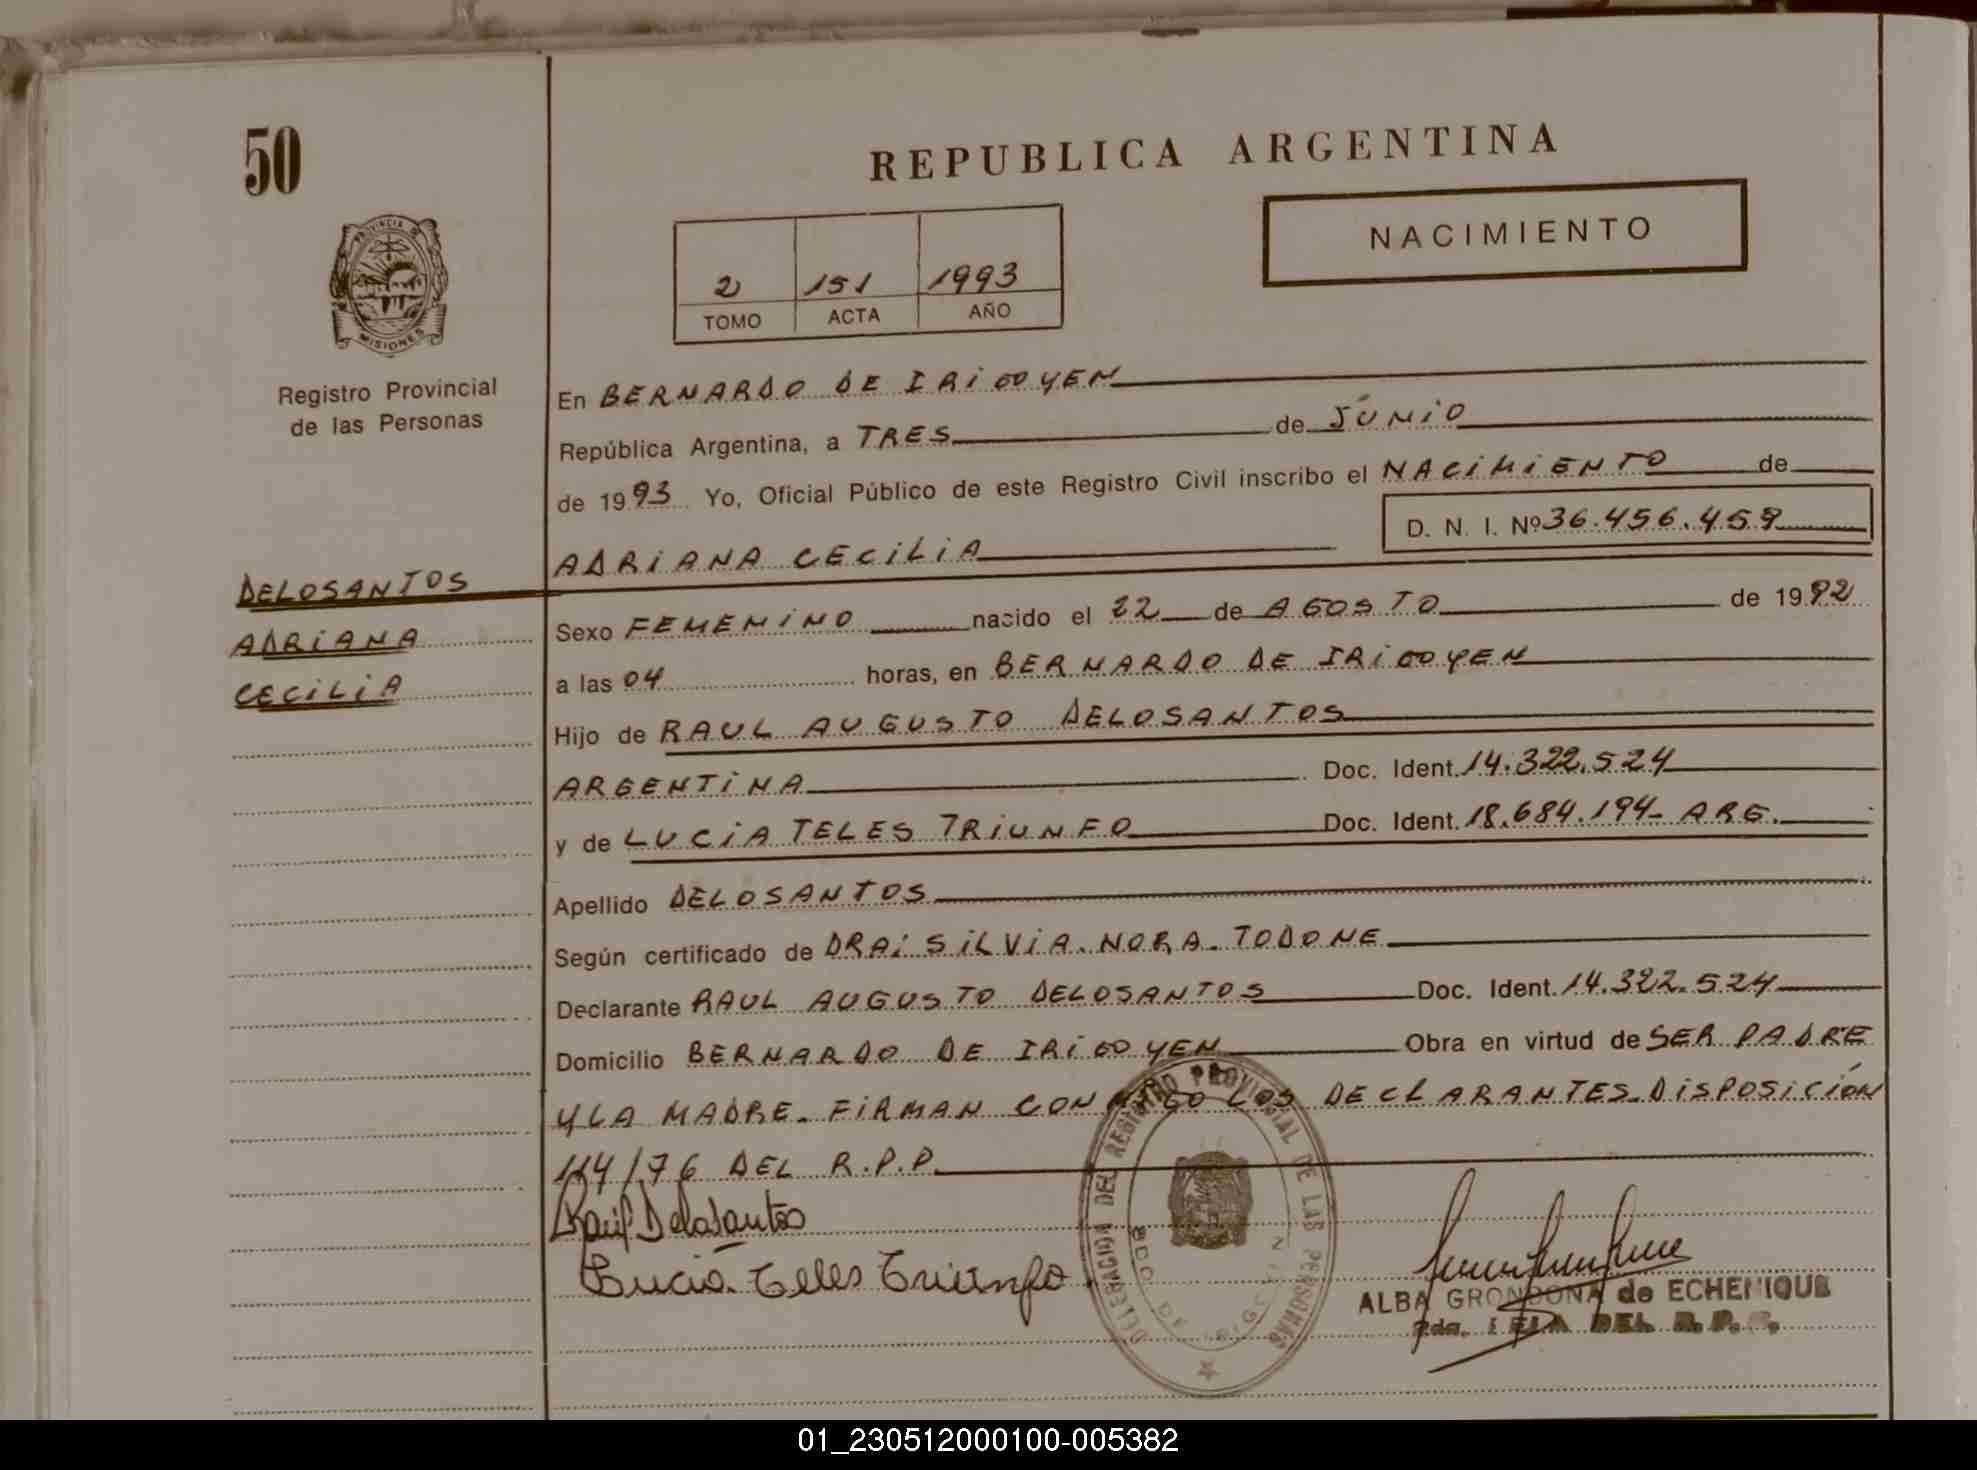 50
REPUBLICA ARGENTINA
NACIMIENTO
2 151 1993
TOMO ACTA AÑO
PROVINCIA DE
MISIONES
Registro Provincial
de las Personas
En BERNARDO DE IRIGOYEN
República Argentina, a TRES de JUNIO
de 1993 Yo, Oficial Público de este Registro Civil inscribo el NACIMIENTO de
D. N. I. Nº 36.456.459
ADRIANA CECILIA
DELOSANTOS
ADRIANA
CECILIA
Sexo FEMENINO nacido el 22 de AGOSTO de 1992
a las 04 horas, en BERNARDO DE IRIGOYEN
Hijo de RAUL AUGUSTO DELOSANTOS
ARGENTINA Doc. Ident. 14.322.524
y de LUCIA TELES TRIUNFO Doc. Ident. 18.684.194- ARG.
Apellido DELOSANTOS
Según certificado de DRA; SILVIA. NORA. TODONE
Declarante RAUL AUGUSTO DELOSANTOS Doc. Ident. 14.322.524
Domicilio BERNARDO DE IRIGOYEN Obra en virtud de SER PADRE
Y LA MADRE. FIRMAN CONMIGO LOS DECLARANTES. DISPOSICIÓN
114/76 DEL R.P.P.
Raúl Delosantos
Lucia Teles Triunfo
DELEGACION DEL REGISTRO PROVINCIAL DE LAS PERSONAS
BDO. DE IRIGOYEN
ALBA GRONDONA de ECHENIQUE
DEL R.P.P.
01_230512000100-005382